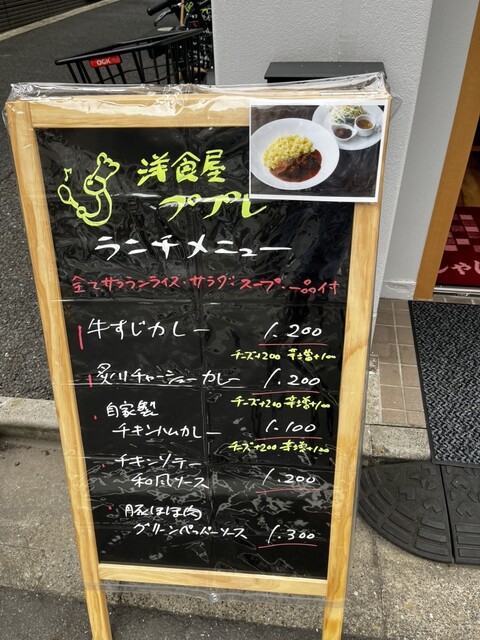 OGK
洋食屋
ププレ
ランチメニュー
全てサフランライス・サラダ・スープ・一品付
牛すじカレー 1.200
チーズ+200 辛さ増+100
炙りチャーシューカレー 1.200
チーズ+200 辛さ増+100
自家製
チキンハムカレー 1.100
チーズ+200 辛さ増+100
チキンソテー
和風ソース 1.200
豚ほほ肉
グリーンペッパーソース 1.300